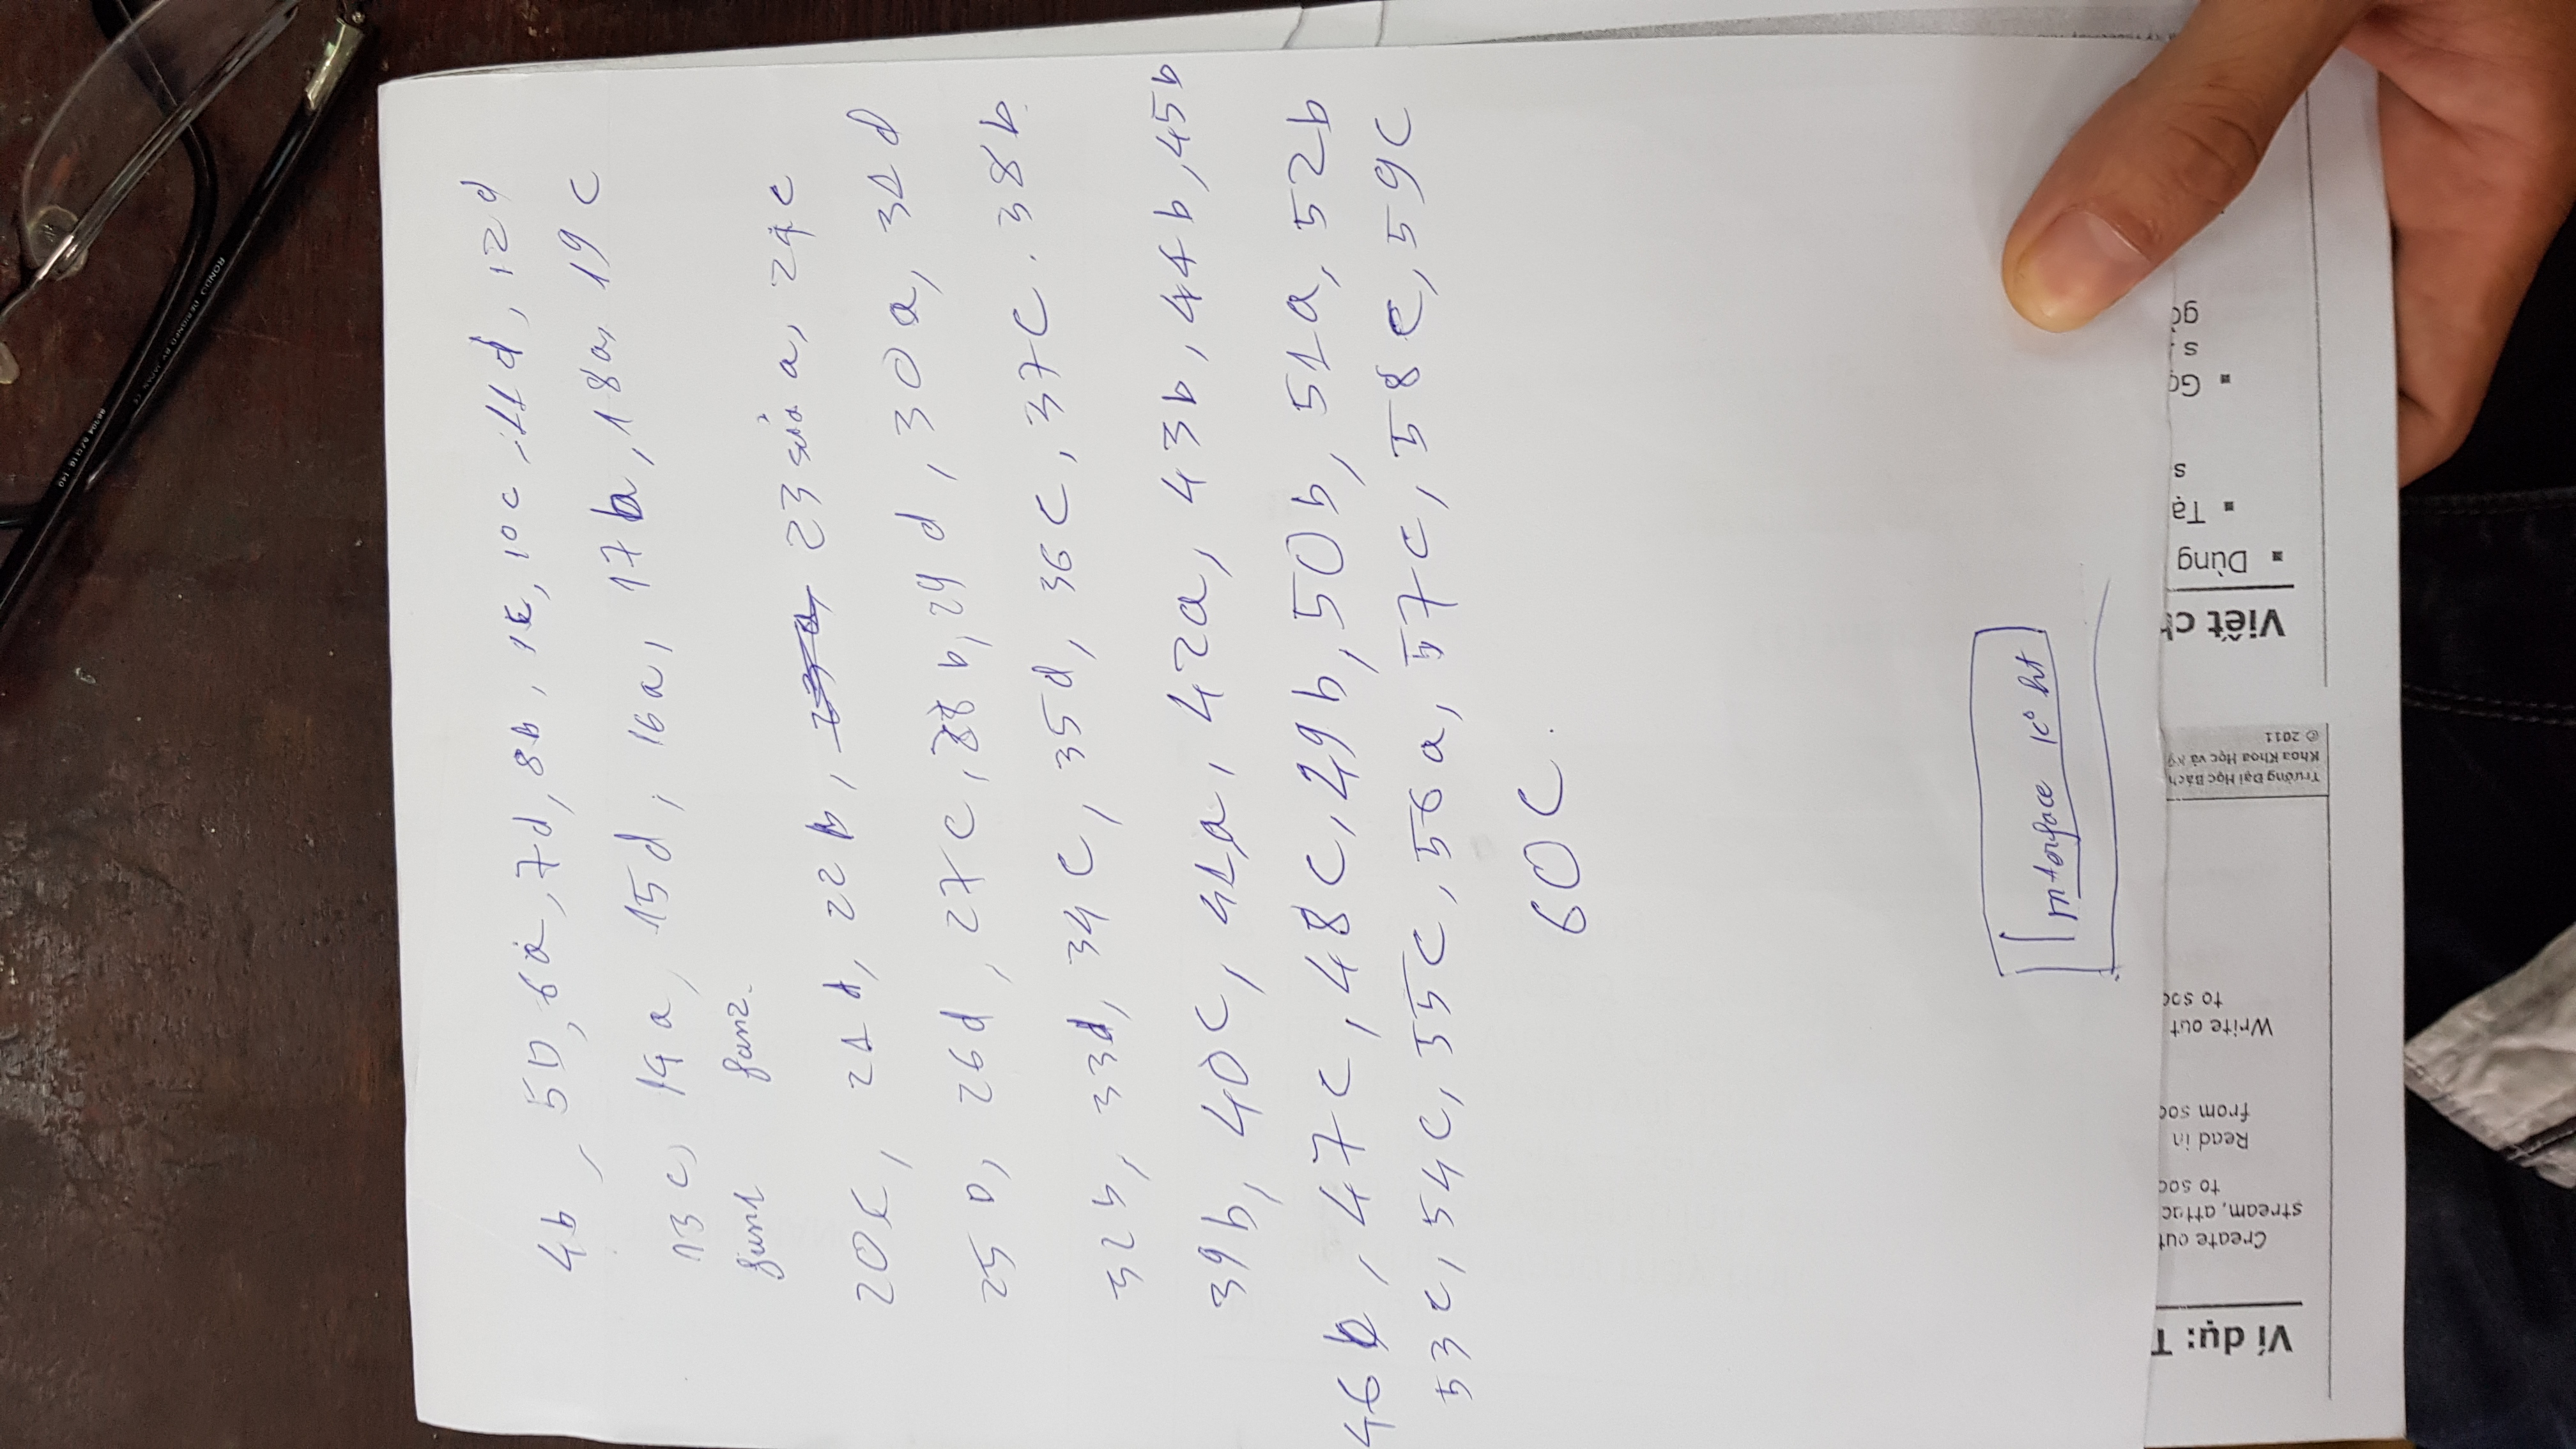 4b, 5D, 6a, 7d, 8b, 1c, 10c, 11d, 12d
13c, 14a, 15d, 16a, 17b, 18a, 19c
fun1 fun2.
20c, 21d, 22b, 23 sửa a, 24c
25D, 26d, 27c, 28b, 29d, 30a, 31d
32b, 33d, 34c, 35d, 36c, 37c. 38b
39b, 40c, 41a, 42a, 43b, 44b, 45b
46b, 47c, 48c, 49b, 50b, 51a, 52b
53c, 54c, 55c, 56a, 57c, 58c, 59c
60c.
Interface k° ht
Ví dụ: T
Create out
stream, attac
to soc
Read in
from soc
Write out
to soc
Trường Đại Học Bách
Khoa Khoa Học và Kỹ
© 2011
Viết ch
Dùng
Tạ
s
Gọ
s
gở
RONDO DESIGNED BY JAPAN